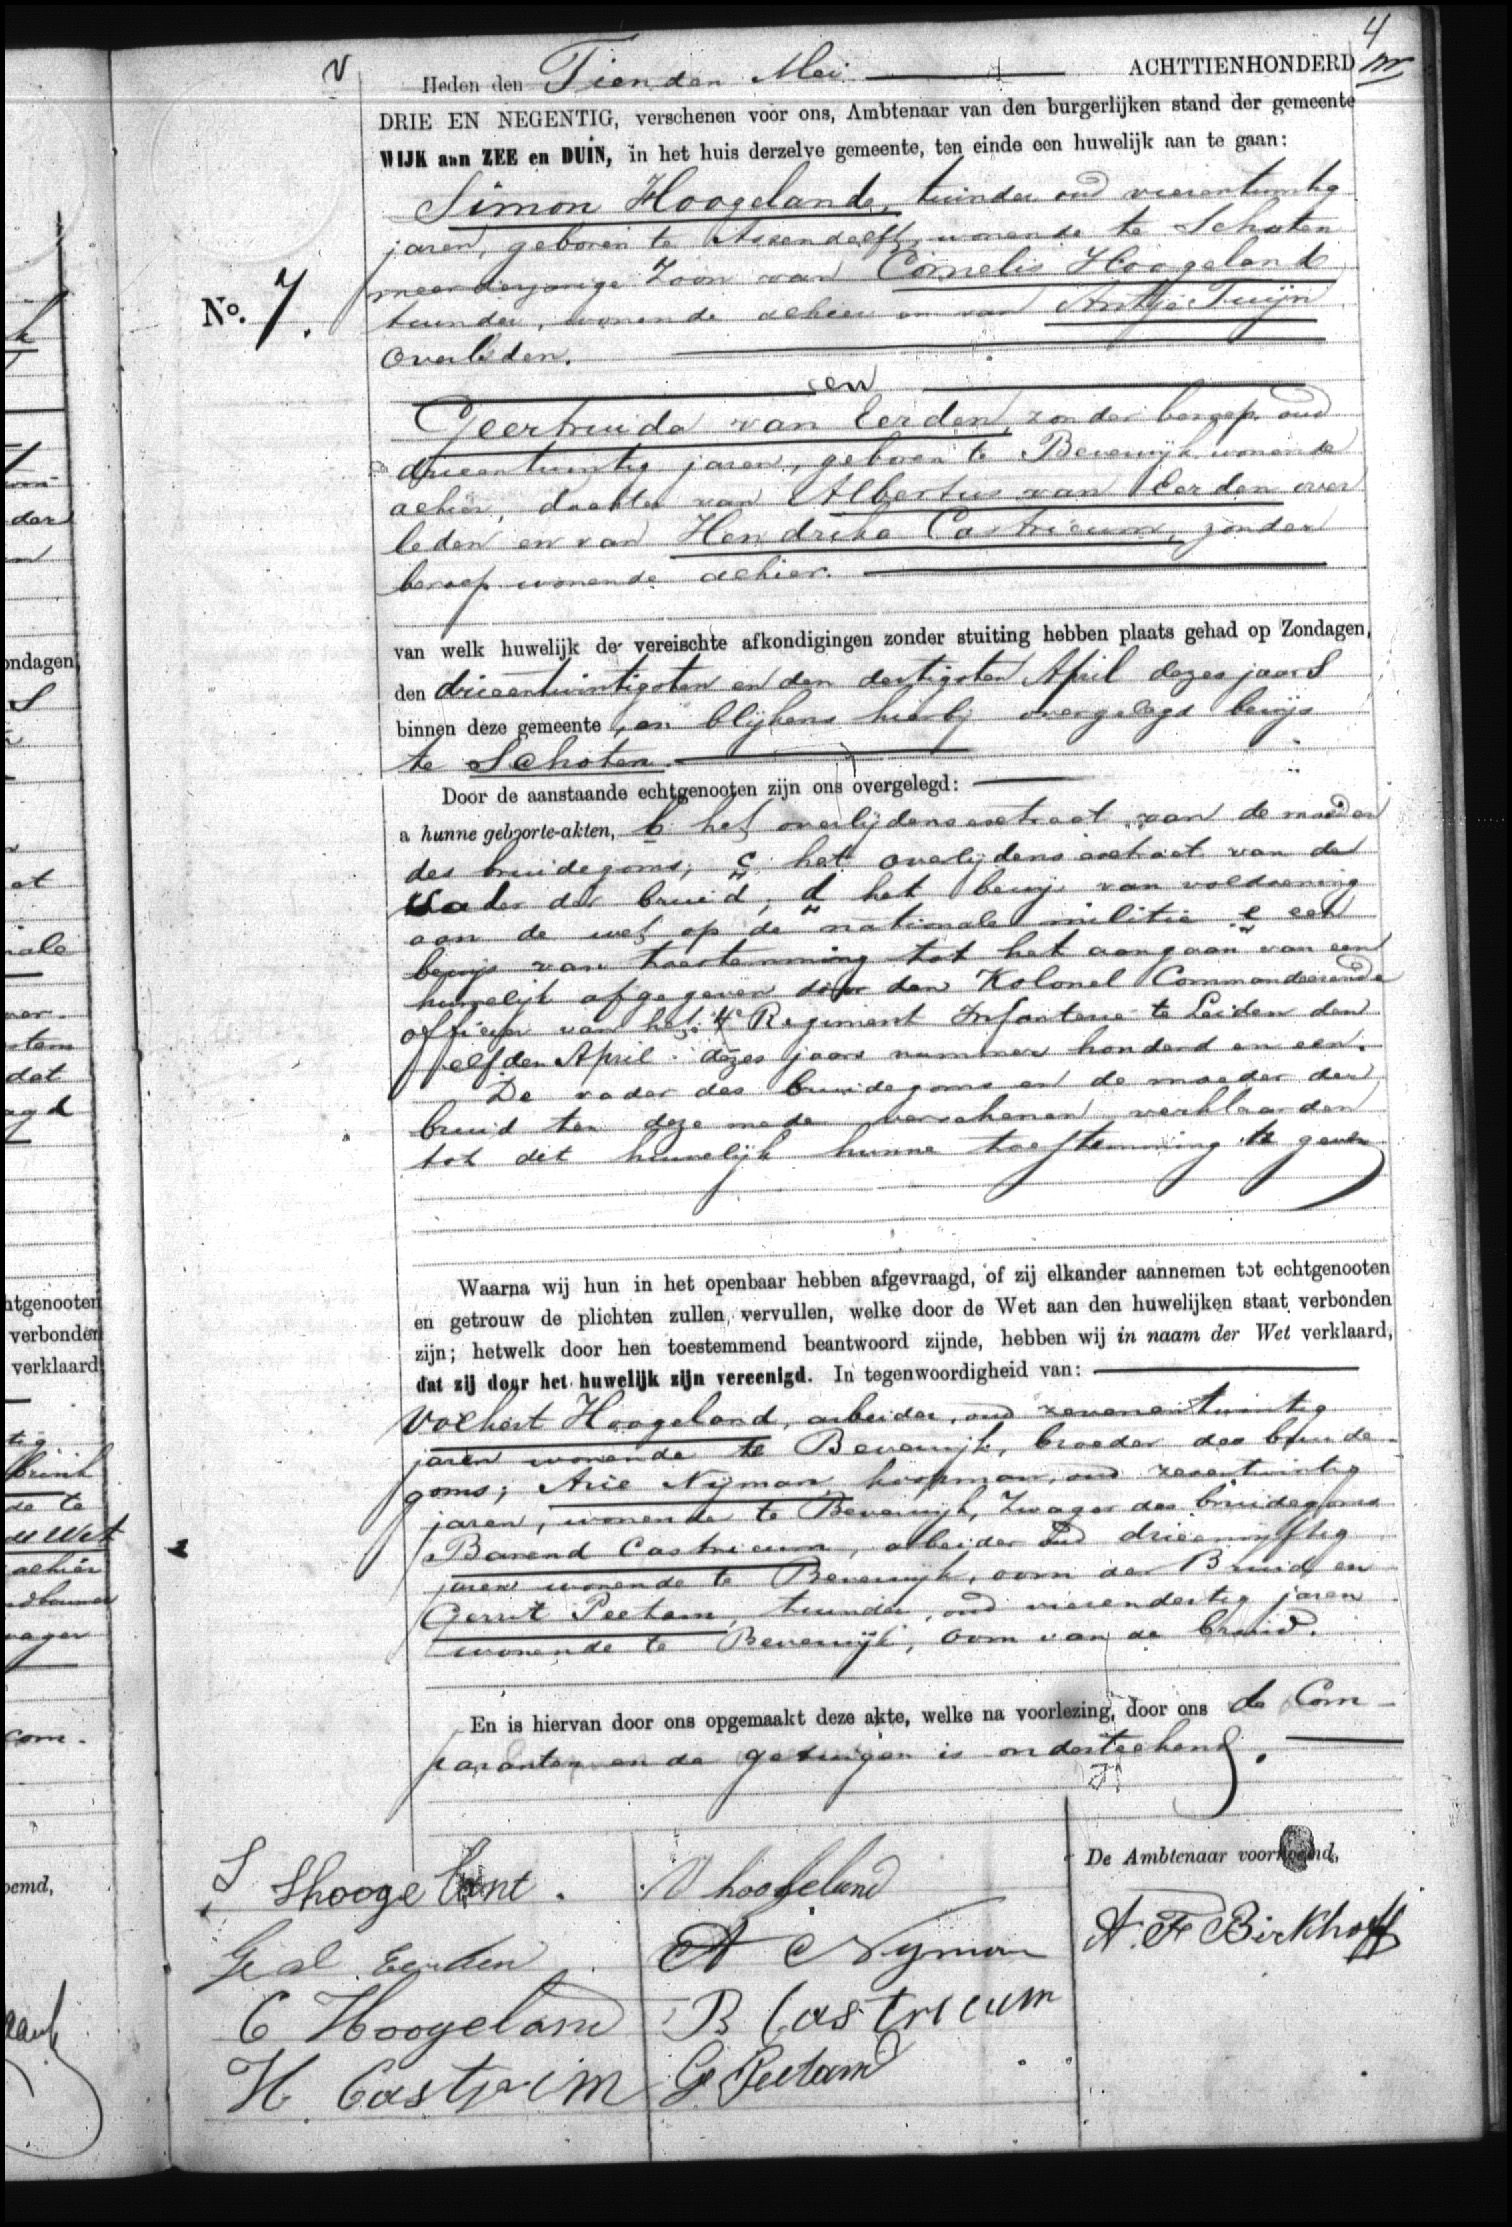 4
V Heden den Tienden Mei ACHTTIENHONDERD
DRIE EN NEGENTIG, verschenen voor ons, Ambtenaar van den burgerlijken stand der gemeente
WIJK aan ZEE en DUIN, in het huis derzelve gemeente, ten einde een huwelijk aan te gaan:
Simon Hoogeland, tuinder oud vierentwintig
jaren, geboren te Assendelft, wonende te Schoten
meerderjarige Zoon van Cornelis Hoogeland
No. 7.
tuinder, wonende alhier en van Antje Tuijn
overleden.
en
Geertruida van Eerden, zonder beroep, oud
drieentwintig jaren, geboren te Beverwijk wonende
alhier, dochter van Albertus van Eerden over
leden en van Hendrika Castricum, zonder
beroep wonende alhier.
van welk huwelijk de vereischte afkondigingen zonder stuiting hebben plaats gehad op Zondagen,
den drieentwintigsten en den dertigsten April dezes jaars
binnen deze gemeente, en blijkens hierbij overgelegd bewijs
te Schoten.
Door de aanstaande echtgenooten zijn ons overgelegd:
a hunne geboorte-akten, b het overlijdensextract van de moeder
des bruidegoms; c het overlijdens extract van de
vader der bruid; d het bewijs van voldoening
aan de wet op de nationale militie e een
bewijs van toestemming tot het aangaan van een
huwelijk afgegeven door den Kolonel Commandeerende
officier van het 4e Regiment Infanterie te Leiden den
elfden April dezes jaars nummer honderd en een.
De vader des bruidegoms en de moeder der
bruid ten deze mede verschenen verklaarden
tot dit huwelijk hunne toestemming te geven
Waarna wij hun in het openbaar hebben afgevraagd, of zij elkander aannemen tot echtgenooten
en getrouw de plichten zullen vervullen, welke door de Wet aan den huwelijken staat verbonden
zijn; hetwelk door hen toestemmend beantwoord zijnde, hebben wij in naam der Wet verklaard,
dat zij door het huwelijk zijn vereenigd. In tegenwoordigheid van:
Volkert Hoogeland, arbeider, oud zevenentwintig
jaren wonende te Beverwijk, broeder des bruide-
goms; Arie Nijman, koopman, oud zesentwintig
jaren, wonende te Beverwijk, Zwager des bruidegoms
Barend Castricum, arbeider oud drieenvijftig
jaren wonende te Beverwijk, oom der Bruid en
Gerrit Peetam, tuinder, oud vierendertig jaren
wonende te Beverwijk, oom van de bruid.
En is hiervan door ons opgemaakt deze akte, welke na voorlezing, door ons de Com-
paranten en de getuigen is onderteekend.
De Ambtenaar voornoemd,
S Hoogeland. V hoogeland
A. F Birkhoff
G v Eerden A Nyman
C Hoogeland B Castricum
H Castricim G Peetam